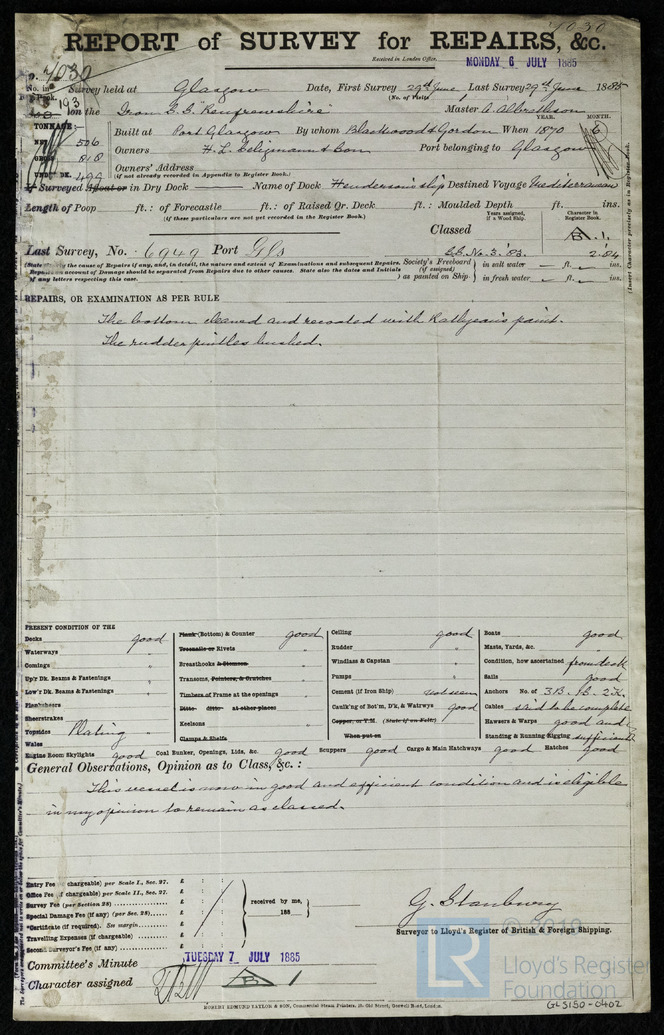 7030
REPORT of SURVEY for REPAIRS, &c.
Received in London Office,
MONDAY 6 JULY 1885
7030
No. in Survey held at Glasgow Date, First Survey 29th June Last Survey 29th June 1885
(No. of Visits)
193 on the Iron S.S. "Renfrewshire" Master A.
TONNAGE:
YEAR. MONTH.
NET 506
GROSS 818
UNDR DK. 499
Built at Port Glasgow By whom Blackwood & Gordon When 1870 6
Owners H. L. Seligmann & Son Port belonging to Glasgow
Owners' Address
(if not already recorded in Appendix to Register Book.)
If Surveyed Afloat or in Dry Dock Name of Dock Henderson's slip Destined Voyage Mediterranean
Length of Poop ft.: of Forecastle ft.: of Raised Qr. Deck ft.: Moulded Depth ft. ins.
(if these particulars are not yet recorded in the Register Book.)
Years assigned, if a Wood Ship.
Character in Register Book.
Classed
A 1.
Last Survey, No. 6949 Port Gls
S.S. No. 3. '83. 2.84
(State clearly the cause of Repairs if any, and, in detail, the nature and extent of Examinations and subsequent Repairs.
Repairs on account of Damage should be separated from Repairs due to other causes. State also the dates and Initials
of any letters respecting this case.
Society's Freeboard (if assigned) as painted on Ship
in salt water ft. ins.
in fresh water ft. ins.
(Insert Character precisely as in Register Book.
REPAIRS, OR EXAMINATION AS PER RULE
The bottom cleaned and recoated with Rathjean's paint.
The rudder pintles bushed.
PRESENT CONDITION OF THE
Decks good
Waterways "
Comings "
Up'r Dk. Beams & Fastenings "
Low'r Dk. Beams & Fastenings "
Planksheers
Sheerstrakes
Topsides Plating "
Wales
Engine Room Skylights good
Plank (Bottom) & Counter good
Treenails or Rivets "
Breasthooks & Stemson "
Transoms, Pointers, & Crutches "
Timbers of Frame at the openings "
Ditto ditto at other places
Keelsons "
Clamps & Shelfs
Coal Bunker, Openings, Lids, &c. good
Ceiling good
Rudder "
Windlass & Capstan "
Pumps "
Cement (if Iron Ship) not seen
Caulk'ng of Bot'm, D'k, & Watrwys good
Copper, or Y.M. (State if on Felt)
When put on
Scuppers good Cargo & Main Hatchways good
Boats good
Masts, Yards, &c. "
Condition, how ascertained from deck
Sails good
Anchors No. of 3B. 1S. 2K.
Cables said to be complete
Hawsers & Warps good and
Standing & Running Rigging sufficient
Hatches good
General Observations, Opinion as to Class, &c.:
This vessel is now in good and efficient condition and is eligible
in my opinion to remain as classed.
Entry Fee (if chargeable) per Scale I., Sec. 27. £ : :
Office Fee (if chargeable) per Scale II., Sec. 27. £ : :
Survey Fee (per Section 28) £ : :
Special Damage Fee (if any) (per Sec. 28) £ : :
*Certificate (if required). Sm margin £ : :
Travelling Expenses (if chargeable) £ : :
Second Surveyor's Fee (if any) £ : :
received by me,
188
G. Stanbury
Surveyor to Lloyd's Register of British & Foreign Shipping.
Committee's Minute TUESDAY 7 JULY 1885
Character assigned A 1
ROBERT EDMUND TAYLOR & SON, Commercial Steam Printers, 19, Old Street, Goswell Road, London.
LR
Lloyd's Register
Foundation
GLS150-0402